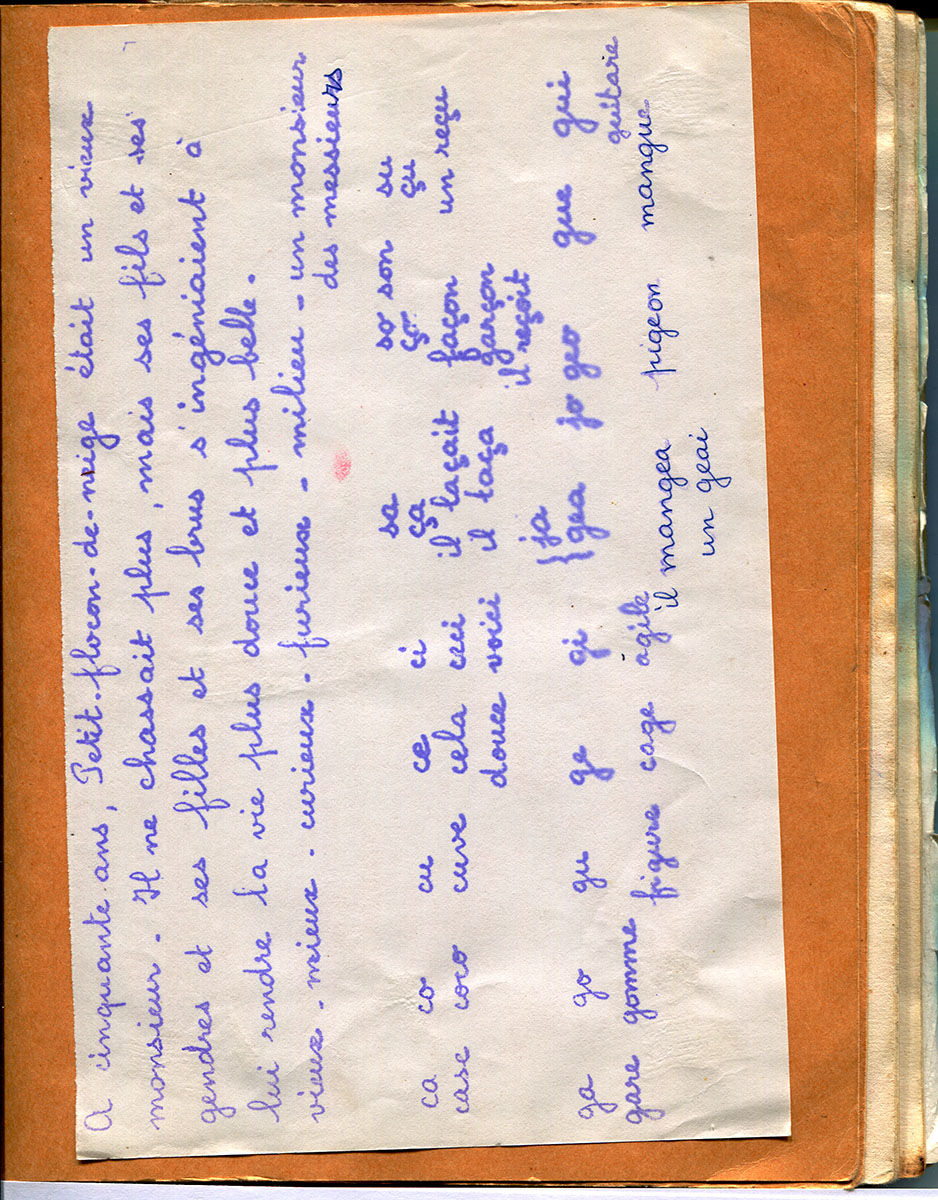 A cinquante ans, Petit-flocon-de-neige était un vieux
monsieur. Il ne chassait plus, mais ses fils et ses
gendres et ses filles et ses brus s'ingéniaient à
lui rendre la vie plus douce et plus belle.
vieux - mieux - curieux - furieux - milieu - un monsieur
des messieurs
ca co cu ce ci sa so son su
ça ço çu
case coco cuve cela ceci il laçait façon un reçu
douce voici il laça garçon
il reçoit
ga go gu ge gi { ja jo geo gue gui
gea
gare gomme figure cage agile il mangea pigeon mangue guitare
un geai